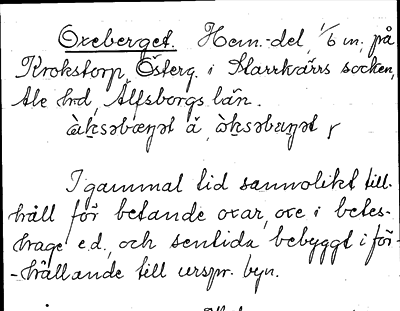 Oxeberget. Hem.-del, 1/6 m, på
Krokstorp, Österg. i Starrkärrs socken,
Ale hrd, Älfsborgs län.
i gammal tid sannolikt till-
håll för betande oxar, oxe i betes-
hage e.d., och sentida bebyggt i för-
-hållande till urspr. byn.